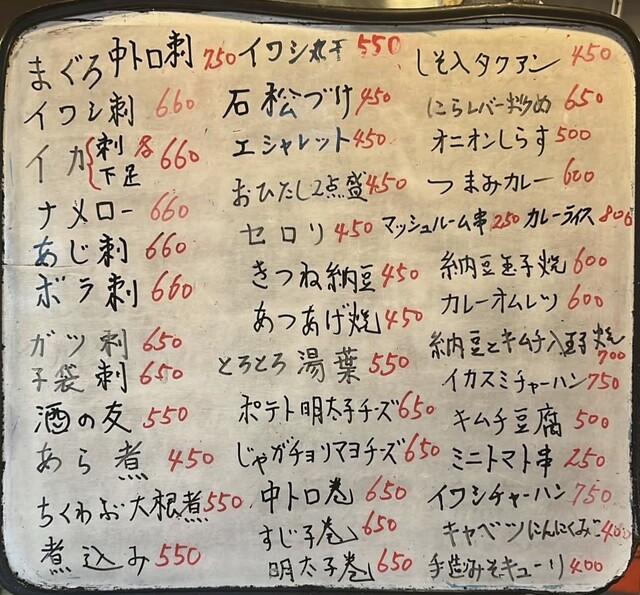 まぐろ中トロ刺 750
イワシ刺 660
イカ{刺 下足 各660
ナメロー 660
あじ刺 660
ボラ刺 660
ガツ刺 650
子袋刺 650
酒の友 550
あら煮 450
ちくわぶ大根煮 550
煮込み 550
イワシ丸干 550
石松づけ 450
エシャレット 450
おひたし2点盛 450
セロリ 450
きつね納豆 450
あつあげ焼 450
とろとろ湯葉 550
ポテト明太子チーズ 650
じゃがチョリマヨチーズ 650
中トロ巻 650
すじ子巻 650
明太子巻 650
しそ入タクアン 450
にらレバー炒め 650
オニオンしらす 500
つまみカレー 600
マッシュルーム串 250 カレーライス 800
納豆玉子焼 600
カレーオムレツ 600
納豆とキムチ入玉子焼 700
イカスミチャーハン 750
キムチ豆腐 500
ミニトマト串 250
イワシチャーハン 750
キャベツにんにくみそ 400
手造みそキューリ 400